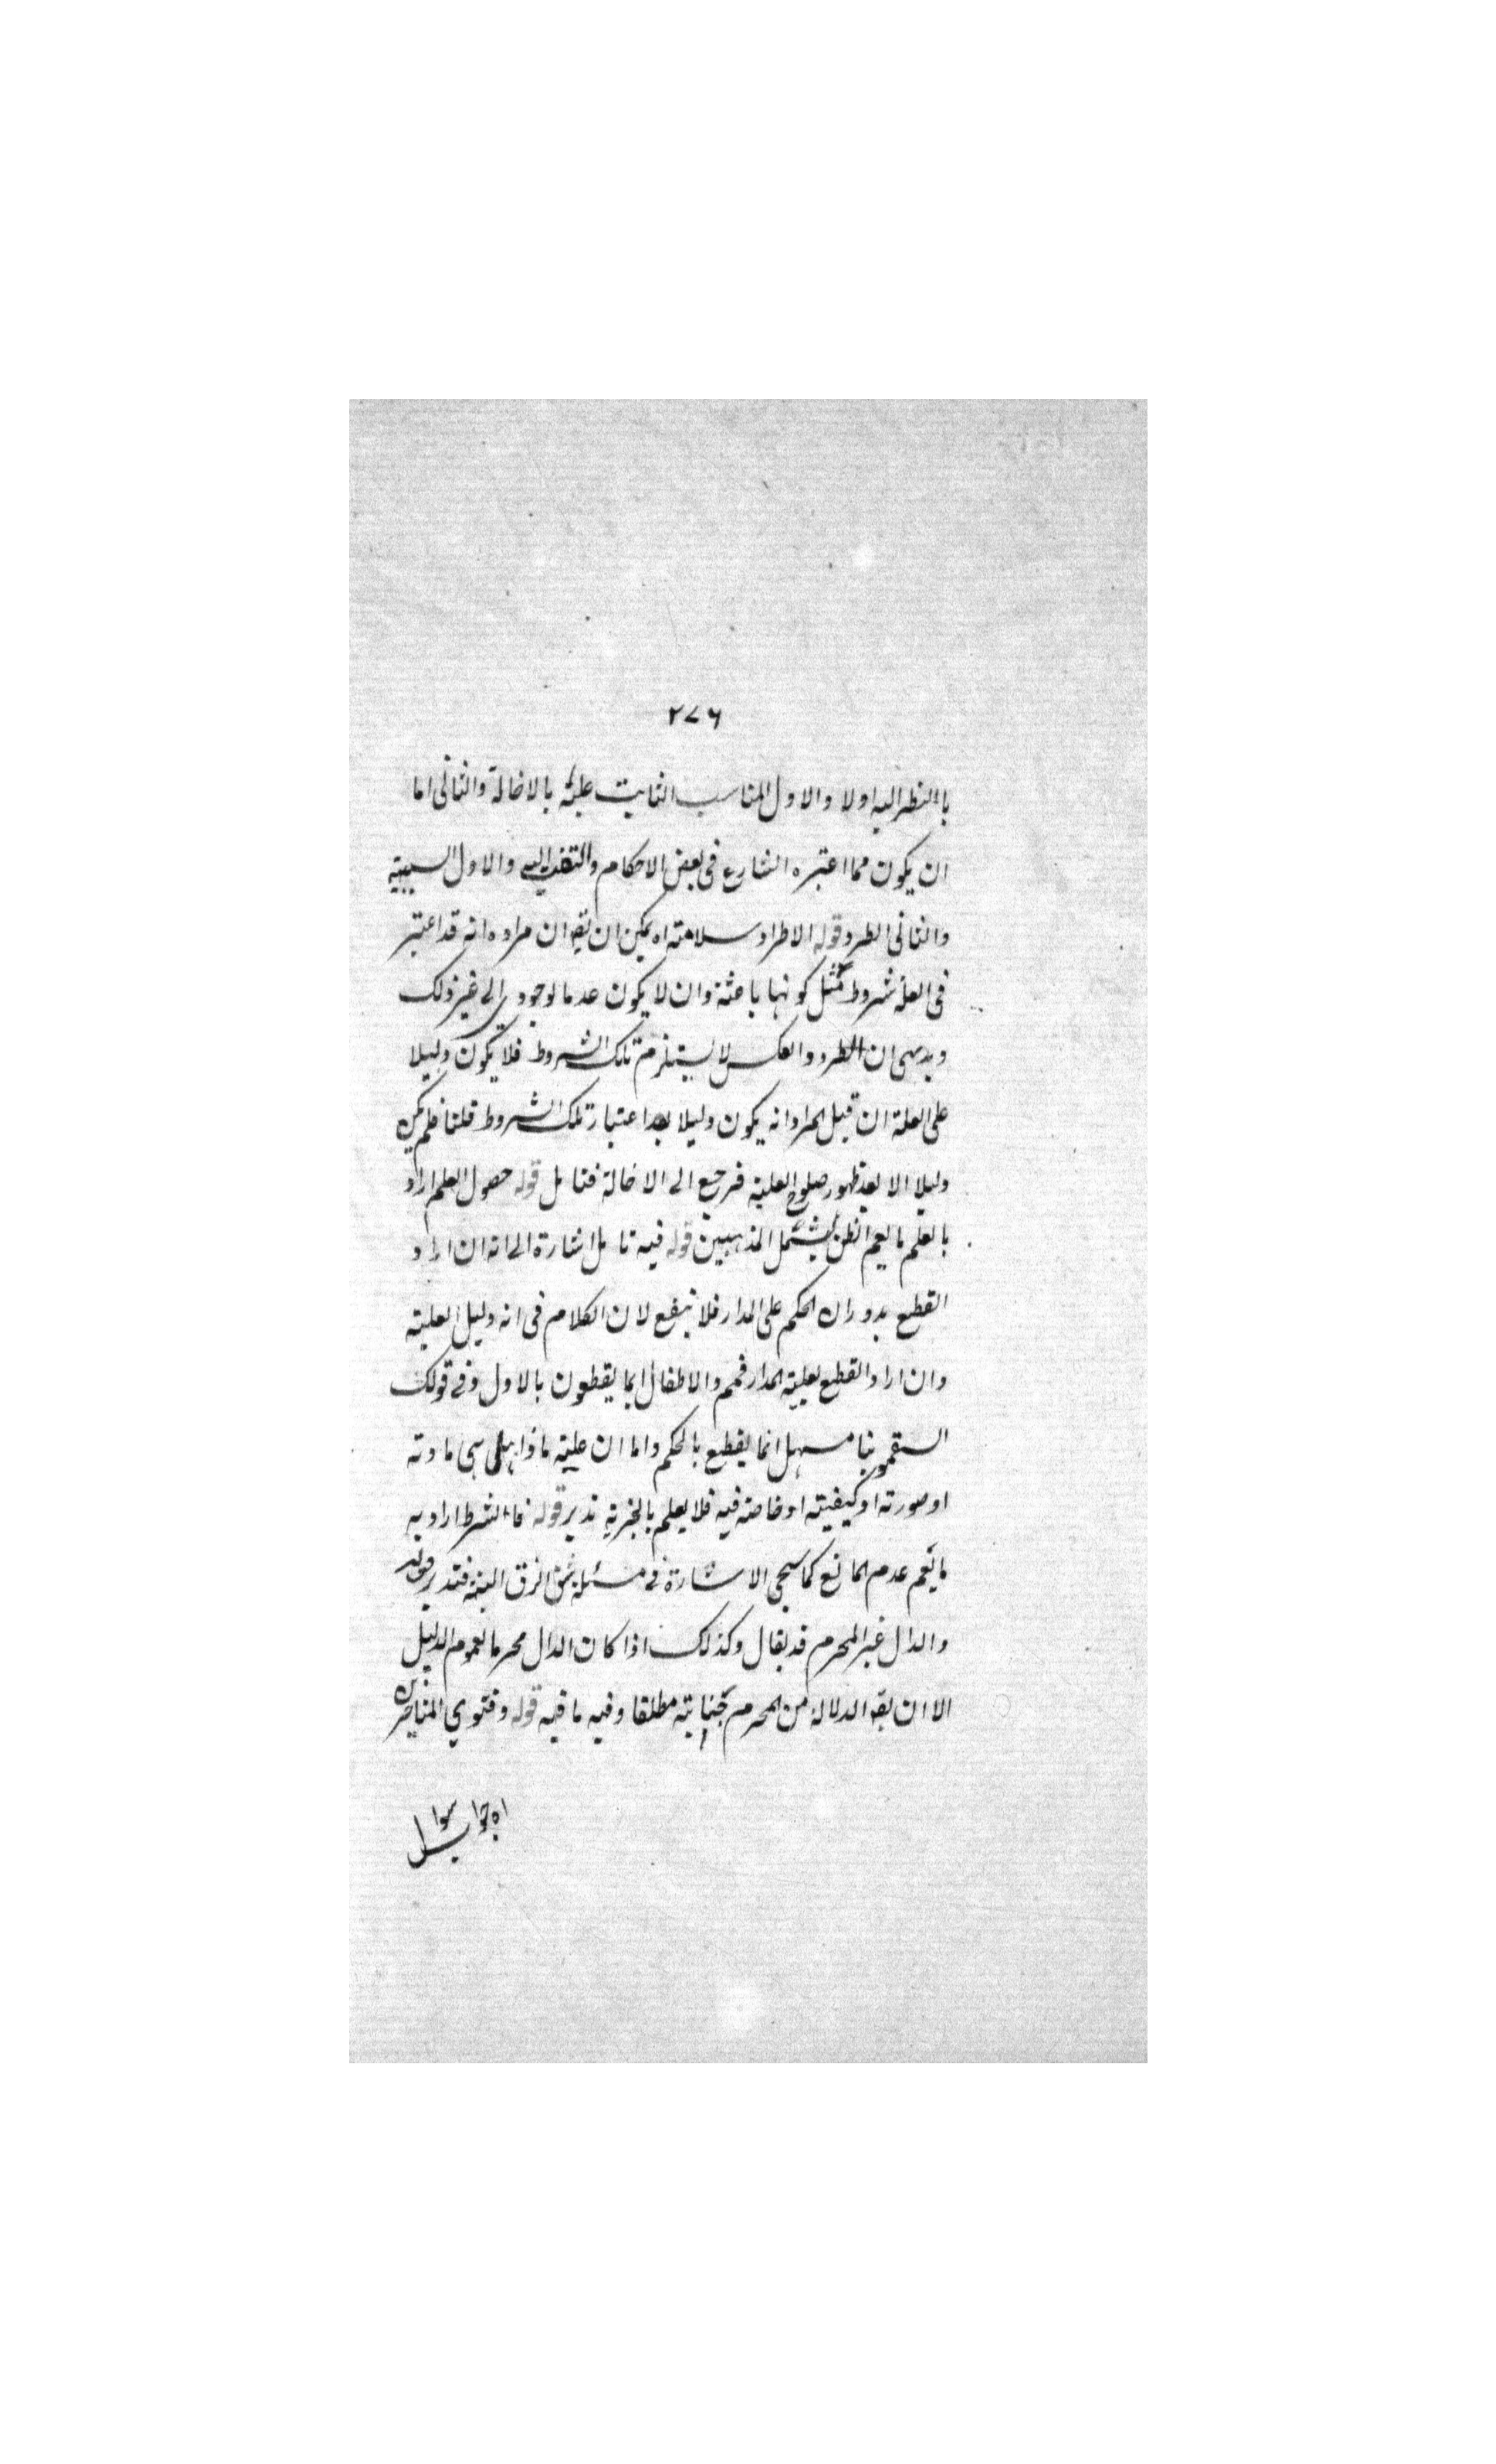 ٢٧٦
بالنظر اليه اولا والاول المناسب الثابت عليته بالاخالة والثانى اما
ان يكون مما اعتبره الشارع فى بعض الاحكام والتفت اليه والاول السببية
والثانى الطرد قوله الاطراد سلامته اه يمكن ان يقه ان مراده انه قد اعتبر
فى العلة شروط مثل كونها باعثة وان لا يكون عدما لوجودى الى غير ذلك
وبديهى ان الطرد والعكس لا يستلزم تلك الشروط فلا يكون دليلا
على العلة ان قيل المراد انه يكون دليلا بعد اعتبار تلك الشروط قلنا فلم يكن
دليلا الا بعد ظهور صلوح العلية فرجع الى الاخالة فتامل قوله حصول العلم اراد
بالعلم ما يعم الظن ليشتمل المذهبين قوله فيه تامل اشارة الى انه ان اراد
القطع بدوران الحكم على المدار فلا ينفع لان الكلام فى انه دليل العلية
وان اراد القطع بعلية المدار فمم والاطفال انما يقطعون بالاول وفى قولك
السقمونيا مسهل انما يقطع بالحكم واما ان علية ماذا هل هى مادته
او صورته او كيفيته او خاصة فيه فلا يعلم بالتجربة تدبر قوله فالشرط اراد به
ما يعم عدم المانع كما سيجى الاشارة فى مسئلة شق الزق البتة فتدبر قوله
والدال غير المحرم قد يقال وكذلك اذا كان الدال محرما لعموم الدليل
الا ان يقه الدلالة من المحرم جناية مطلقا وفيه ما فيه قوله وفتوي المتاخرين
اه جواب سوال